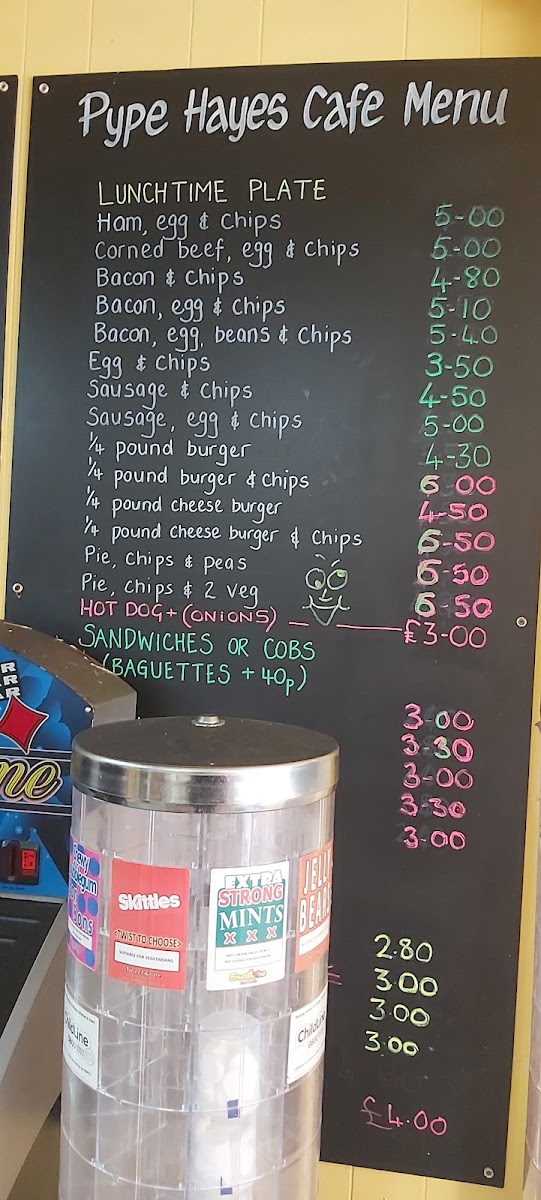 Pype Hayes Cafe Menu
LUNCHTIME PLATE
Ham, egg & Chips 5-00
Corned beef, egg & chips 5-00
Bacon & Chips 4-80
Bacon, egg & Chips 5-10
Bacon, egg, beans & Chips 5-40
Egg & Chips 3-50
Sausage & Chips 4-50
Sausage, egg & Chips 5-00
¼ pound burger 4-30
¼ pound burger & Chips 6-00
¼ pound cheese burger 4-50
¼ pound cheese burger & Chips 6-50
Pie, Chips & peas 6-50
Pie, chips & 2 veg 6-50
HOT DOG + (ONIONS) £3-00
SANDWICHES OR COBS
(BAGUETTES + 40p)
3-00
3-30
3-00
3-30
3-00
2.80
3.00
3.00
3.00
£4.00
Skittles
<TWIST TO CHOOSE>
SUITABLE FOR VEGETARIANS
EXTRA
STRONG
MINTS
X X X
JELLY
BEAN
ChildLine
ChildLine
0800